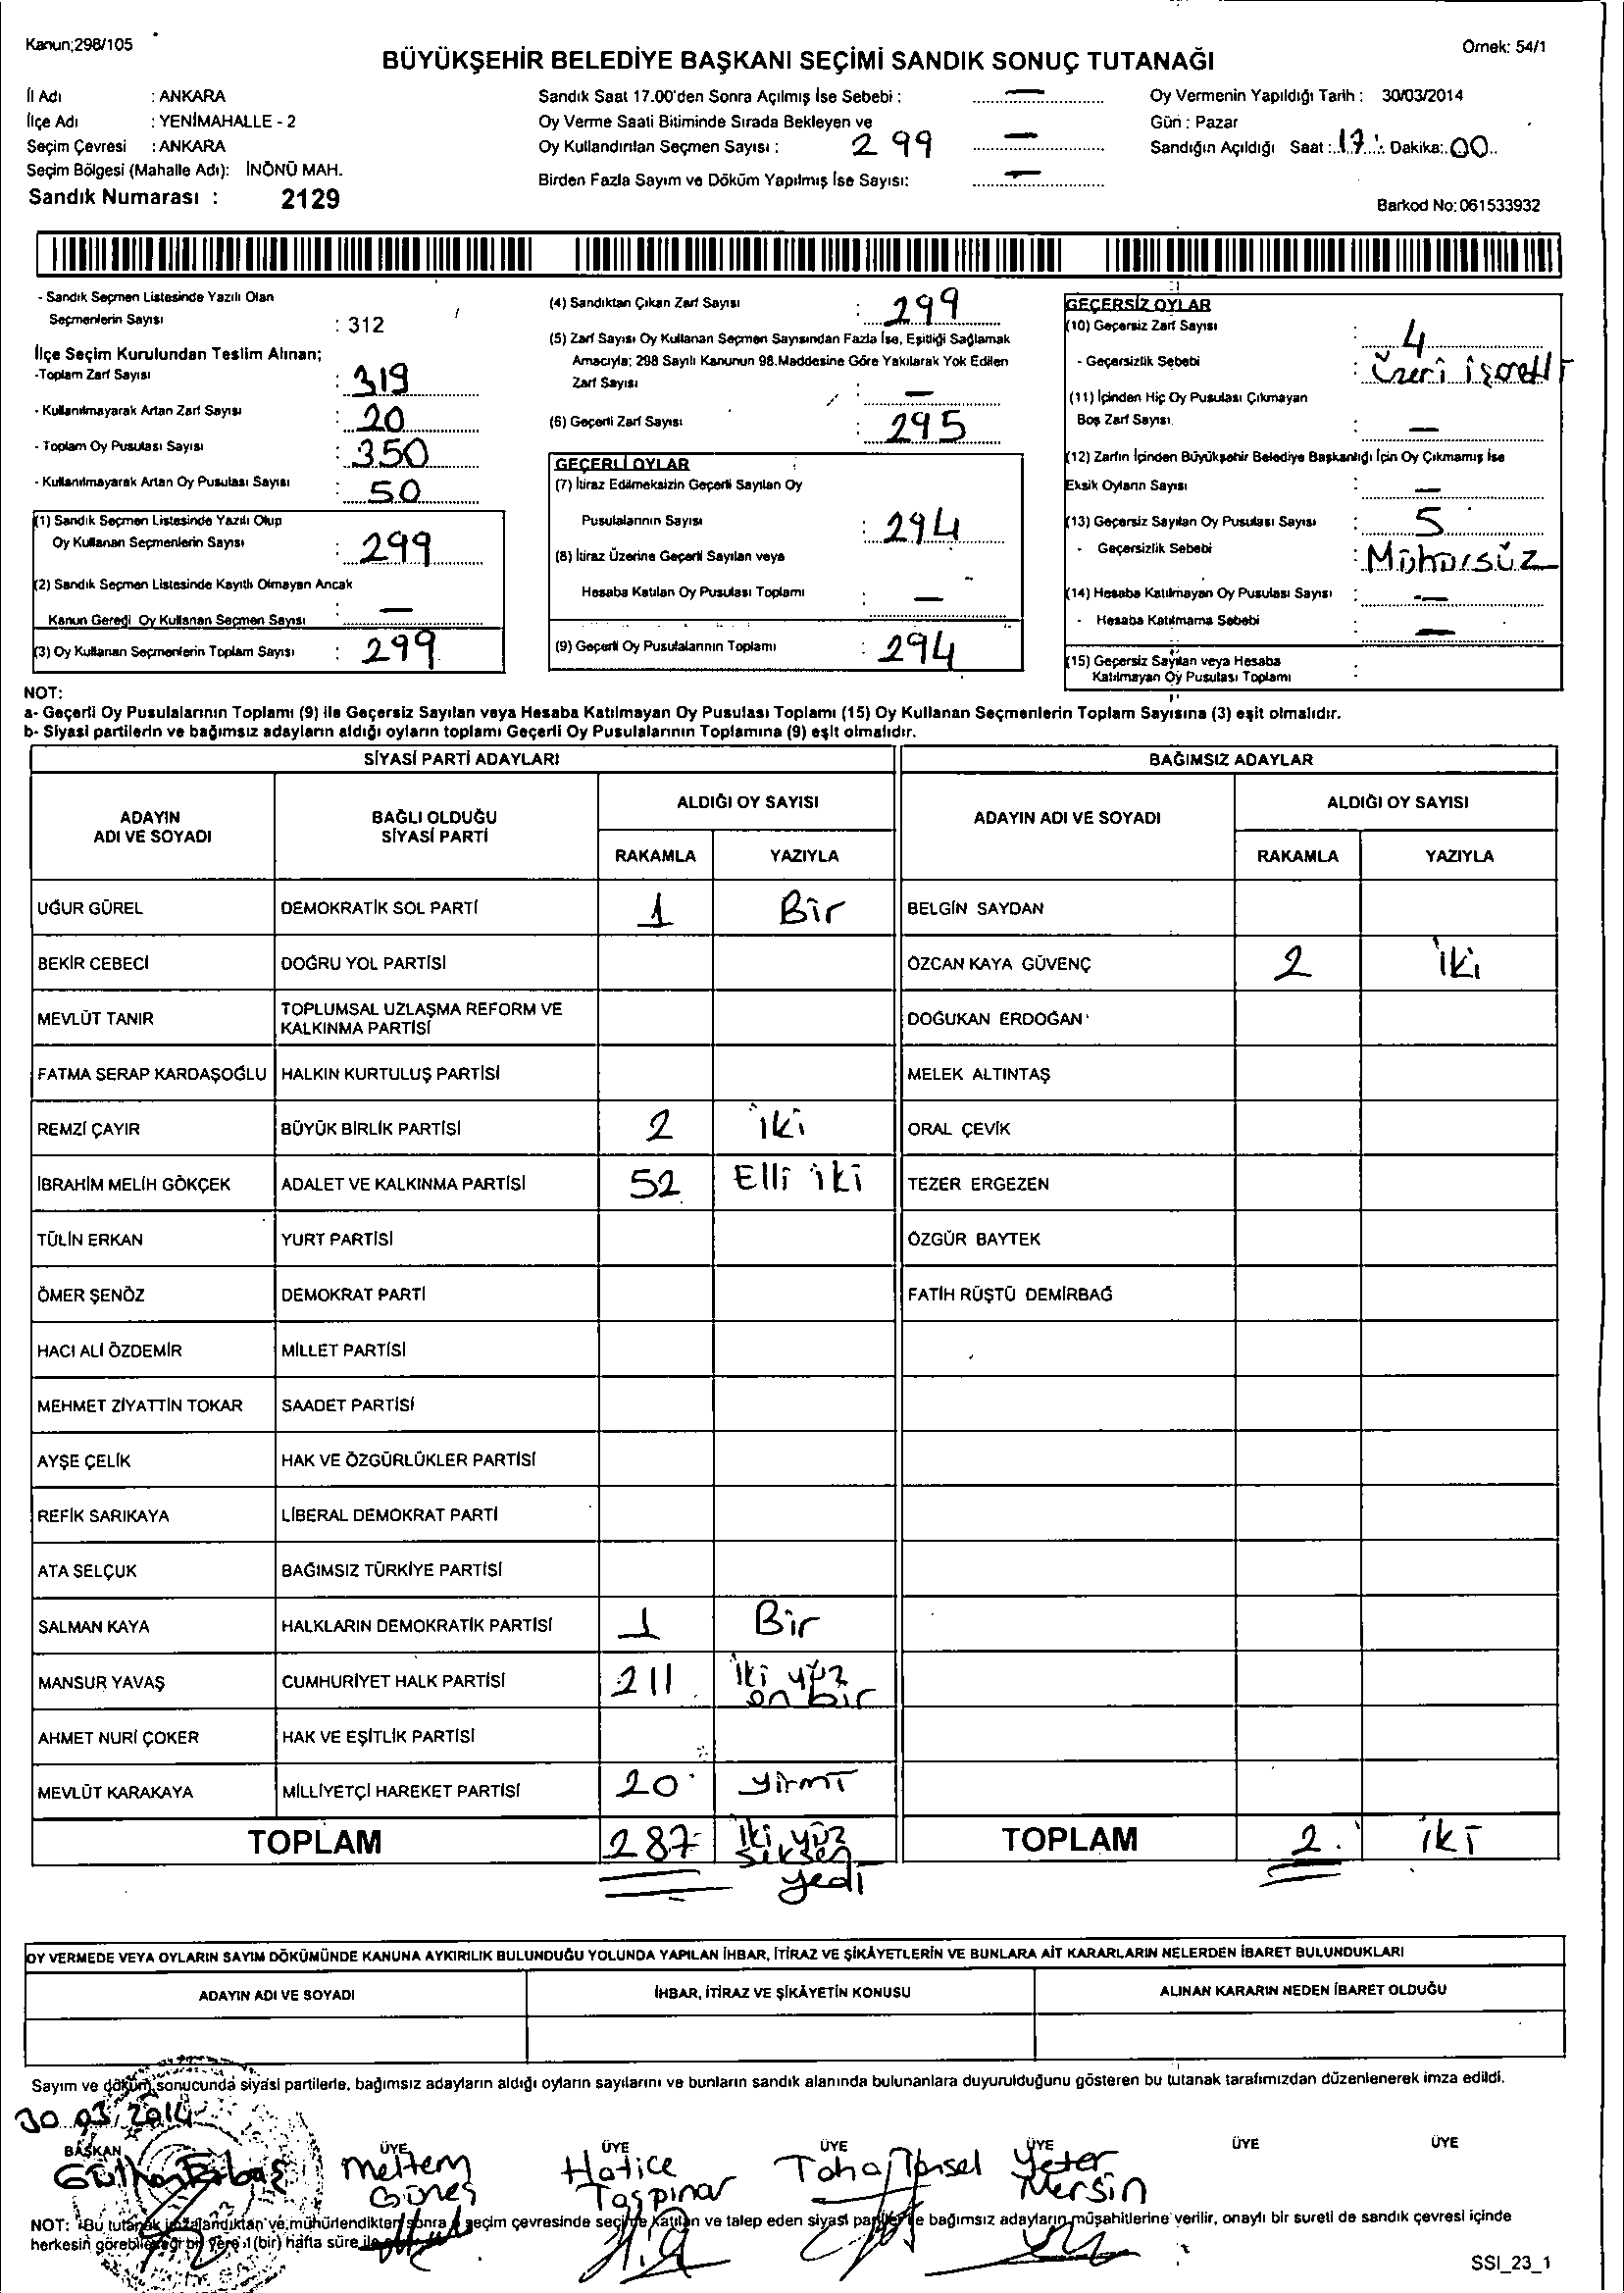 Kanun;298/105
Örnek: 54/1
BÜYÜKŞEHİR BELEDİYE BAŞKANI SEÇİMİ SANDIK SONUÇ TUTANAĞI
İl Adı : ANKARA
İlçe Adı : YENİMAHALLE - 2
Seçim Çevresi : ANKARA
Seçim Bölgesi (Mahalle Adı): İNÖNÜ MAH.
Sandık Numarası : 2129
Sandık Saat 17.00'den Sonra Açılmış İse Sebebi : —
Oy Verme Saati Bitiminde Sırada Bekleyen ve
Oy Kullandırılan Seçmen Sayısı : 299 —
Birden Fazla Sayım ve Döküm Yapılmış İse Sayısı: —
Oy Vermenin Yapıldığı Tarih : 30/03/2014
Gün : Pazar
Sandığın Açıldığı Saat : 17 Dakika: 00
Barkod No: 061533932
- Sandık Seçmen Listesinde Yazılı Olan
Seçmenlerin Sayısı : 312
İlçe Seçim Kurulundan Teslim Alınan;
-Toplam Zarf Sayısı : 319
- Kullanılmayarak Artan Zarf Sayısı : 20
- Toplam Oy Pusulası Sayısı : 350
- Kullanılmayarak Artan Oy Pusulası Sayısı : 50
(1) Sandık Seçmen Listesinde Yazılı Olup
Oy Kullanan Seçmenlerin Sayısı : 299
(2) Sandık Seçmen Listesinde Kayıtlı Olmayan Ancak
Kanun Gereği Oy Kullanan Seçmen Sayısı : —
(3) Oy Kullanan Seçmenlerin Toplam Sayısı : 299
(4) Sandıktan Çıkan Zarf Sayısı : 299
(5) Zarf Sayısı Oy Kullanan Seçmen Sayısından Fazla İse, Eşitliği Sağlamak
Amacıyla; 298 Sayılı Kanunun 98.Maddesine Göre Yakılarak Yok Edilen
Zarf Sayısı : —
(6) Geçerli Zarf Sayısı : 295
GEÇERLİ OYLAR
(7) İtiraz Edilmeksizin Geçerli Sayılan Oy
Pusulalarının Sayısı : 294
(8) İtiraz Üzerine Geçerli Sayılan veya
Hesaba Katılan Oy Pusulası Toplamı : —
(9) Geçerli Oy Pusulalarının Toplamı : 294
GEÇERSİZ OYLAR
(10) Geçersiz Zarf Sayısı : 4
- Geçersizlik Sebebi : Üzeri işaretli
(11) İçinden Hiç Oy Pusulası Çıkmayan
Boş Zarf Sayısı. : —
(12) Zarfın İçinden Büyükşehir Belediye Başkanlığı İçin Oy Çıkmamış İse
Eksik Oyların Sayısı : —
(13) Geçersiz Sayılan Oy Pusulası Sayısı : 5
- Geçersizlik Sebebi : Mühürsüz
(14) Hesaba Katılmayan Oy Pusulası Sayısı : —
- Hesaba Katılmama Sebebi —
(15) Geçersiz Sayılan veya Hesaba
Katılmayan Oy Pusulası Toplamı :
NOT:
a- Geçerli Oy Pusulalarının Toplamı (9) ile Geçersiz Sayılan veya Hesaba Katılmayan Oy Pusulası Toplamı (15) Oy Kullanan Seçmenlerin Toplam Sayısına (3) eşit olmalıdır.
b- Siyasi partilerin ve bağımsız adayların aldığı oyların toplamı Geçerli Oy Pusulalarının Toplamına (9) eşit olmalıdır.
SİYASİ PARTİ ADAYLARI
BAĞIMSIZ ADAYLAR
ADAYIN ADI VE SOYADI
BAĞLI OLDUĞU SİYASİ PARTİ
ALDIĞI OY SAYISI
RAKAMLA YAZIYLA
ADAYIN ADI VE SOYADI
ALDIĞI OY SAYISI
RAKAMLA YAZIYLA
UĞUR GÜREL DEMOKRATİK SOL PARTİ 1 Bir BELGİN SAYDAN
BEKİR CEBECİ DOĞRU YOL PARTİSİ ÖZCAN KAYA GÜVENÇ 2 iki
MEVLÜT TANIR TOPLUMSAL UZLAŞMA REFORM VE KALKINMA PARTİSİ DOĞUKAN ERDOĞAN
FATMA SERAP KARDAŞOĞLU HALKIN KURTULUŞ PARTİSİ MELEK ALTINTAŞ
REMZİ ÇAYIR BÜYÜK BİRLİK PARTİSİ 2 iki ORAL ÇEVİK
İBRAHİM MELİH GÖKÇEK ADALET VE KALKINMA PARTİSİ 52 Elli iki TEZER ERGEZEN
TÜLİN ERKAN YURT PARTİSİ ÖZGÜR BAYTEK
ÖMER ŞENÖZ DEMOKRAT PARTİ FATİH RÜŞTÜ DEMİRBAĞ
HACI ALİ ÖZDEMİR MİLLET PARTİSİ
MEHMET ZİYATTİN TOKAR SAADET PARTİSİ
AYŞE ÇELİK HAK VE ÖZGÜRLÜKLER PARTİSİ
REFİK SARIKAYA LİBERAL DEMOKRAT PARTİ
ATA SELÇUK BAĞIMSIZ TÜRKİYE PARTİSİ
SALMAN KAYA HALKLARIN DEMOKRATİK PARTİSİ 1 Bir
MANSUR YAVAŞ CUMHURİYET HALK PARTİSİ 211 iki yüz on bir
AHMET NURİ ÇOKER HAK VE EŞİTLİK PARTİSİ
MEVLÜT KARAKAYA MİLLİYETÇİ HAREKET PARTİSİ 20 yirmi
TOPLAM 287 iki yüz seksen yedi TOPLAM 2 iki
OY VERMEDE VEYA OYLARIN SAYIM DÖKÜMÜNDE KANUNA AYKIRILIK BULUNDUĞU YOLUNDA YAPILAN İHBAR, İTİRAZ VE ŞİKÂYETLERİN VE BUNLARA AİT KARARLARIN NELERDEN İBARET BULUNDUKLARI
ADAYIN ADI VE SOYADI İHBAR, İTİRAZ VE ŞİKÂYETİN KONUSU ALINAN KARARIN NEDEN İBARET OLDUĞU
Sayım ve döküm sonucunda siyasi partilerle, bağımsız adayların aldığı oyların sayılarını ve bunların sandık alanında bulunanlara duyurulduğunu gösteren bu tutanak tarafımızdan düzenlenerek imza edildi.
30 03/2014
BAŞKAN ÜYE ÜYE ÜYE ÜYE ÜYE ÜYE
Meltem Güneş
Hatice Taşpınar
Taha
Yeter Mersin
NOT: Bu tutanak imzalandıktan ve mühürlendikten sonra seçim çevresinde seçime katılan ve talep eden siyasi partiler ile bağımsız adayların müşahitlerine verilir, onaylı bir sureti de sandık çevresi içinde
herkesin görebileceği bir yere 1 (bir) hafta süre ile
SSI_23_1